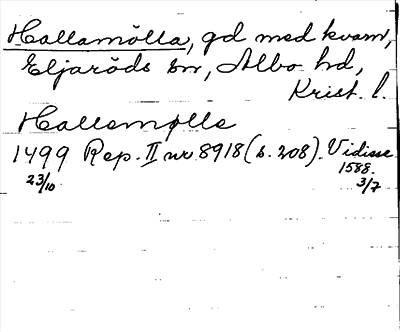 Hallamölla, gd med kvarn,
Eljaröds sn, Albo hd,
Krist. l.
Hallemølle
1499 Rep. II nr 8918 (s. 208). Vidisse
23/10 1588. 3/7